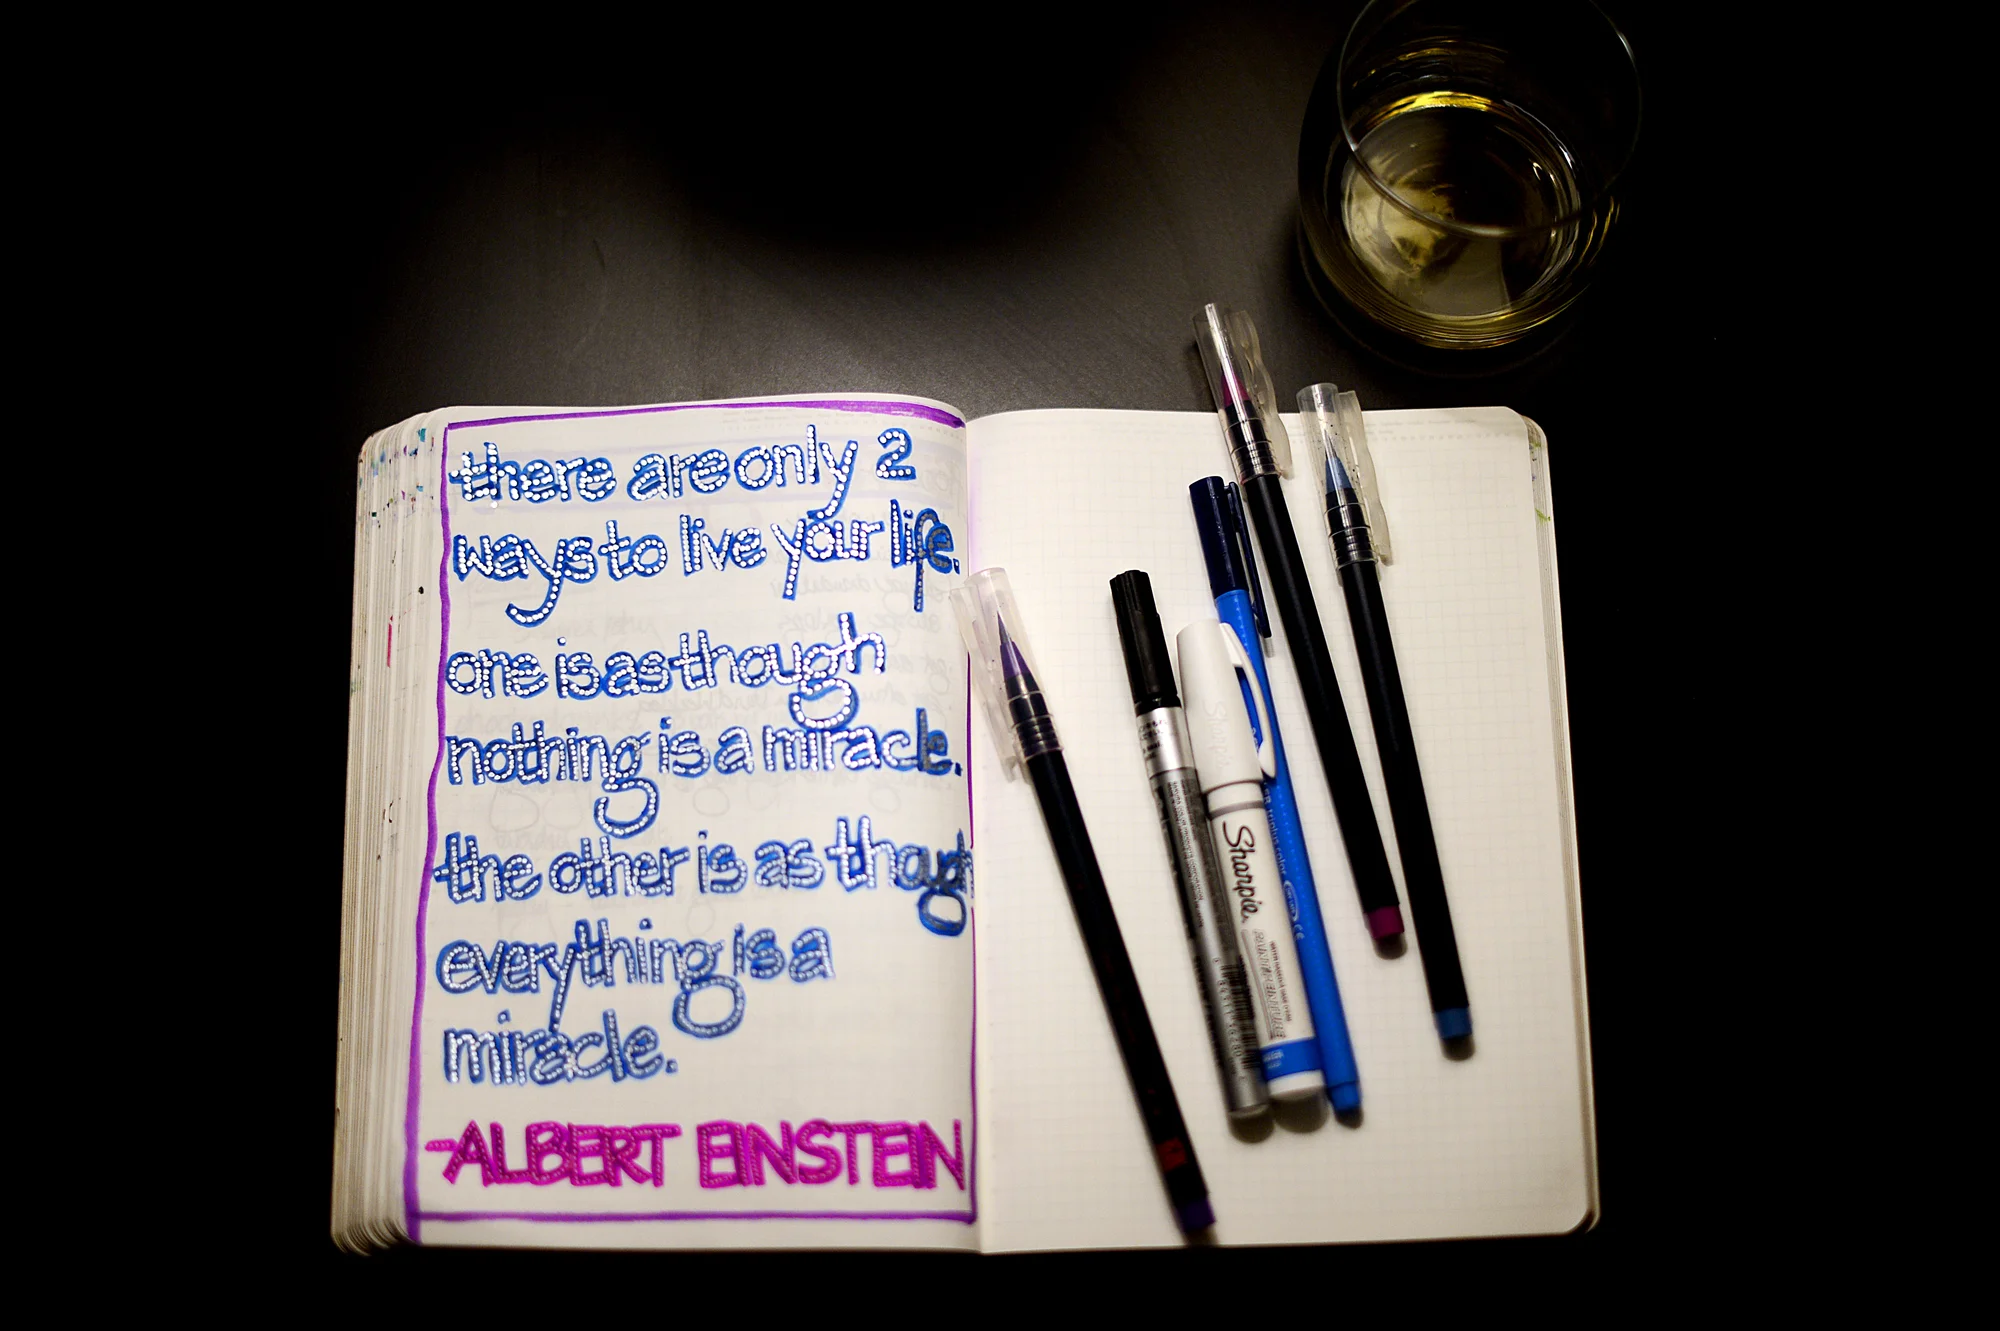 there are only 2
ways to live your life.
one is as though
nothing is a miracle.
the other is as though
everything is a
miracle.
-ALBERT EINSTEIN
Sharpie